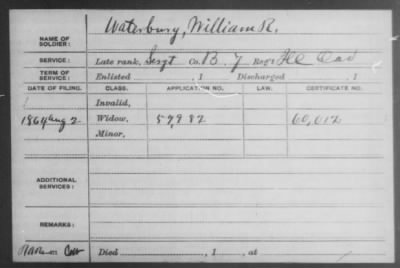 NAME OF SOLDIER: Waterbury, William R.
SERVICE: Late rank, Sergt Co. B, 7 Reg't Ill Cav
TERM OF SERVICE: Enlisted , 1 Discharged , 1
DATE OF FILING. CLASS. APPLICATION NO. LAW. CERTIFICATE NO.
Invalid,
1864 Aug 2 Widow, 59,982 60,012
Minor,
ADDITIONAL SERVICES:
REMARKS:
Died , 1 , at